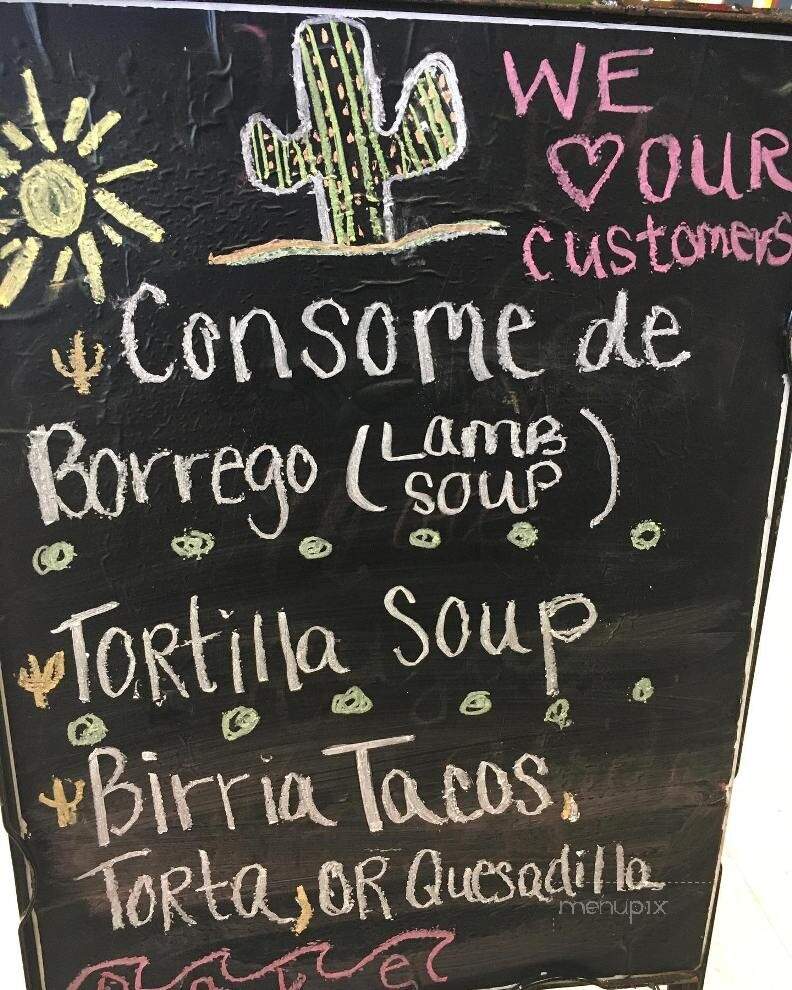 WE
♡ OUR
customers
Consome de
Borrego (LAMB SOUP)
Tortilla Soup
Birria Tacos,
Torta, OR Quesadilla
menupix